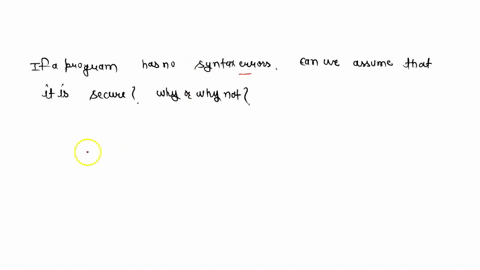 If a program has no syntax errors. can we assume that
it is secure? why or why not?